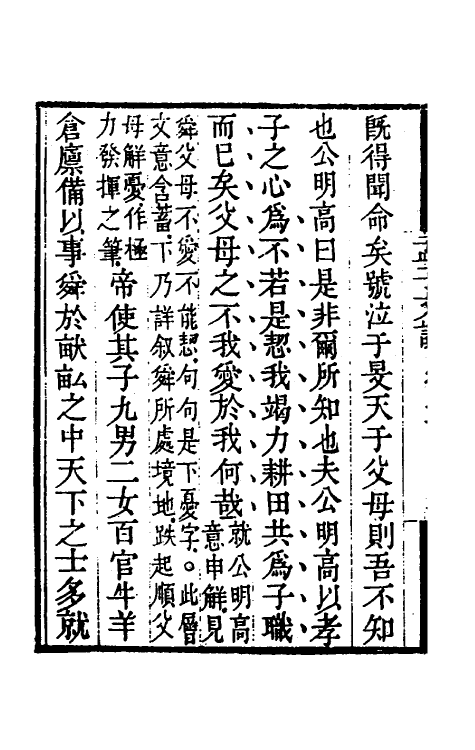 既得聞命矣號泣于旻天于父母則吾不知
也公明高曰是非爾所知也夫公明高以孝
子之心爲不若是恝我竭力耕田共爲子職
而已矣父母之不我愛於我何哉就公明高
意申解見
舜父母不愛不能恝句句是下憂字。此層
文意含蓄下乃詳叙舜所處境地跌起順父
母解憂作極
力發揮之筆帝使其子九男二女百官牛羊
倉廪備以事舜於畎畝之中天下之士多就